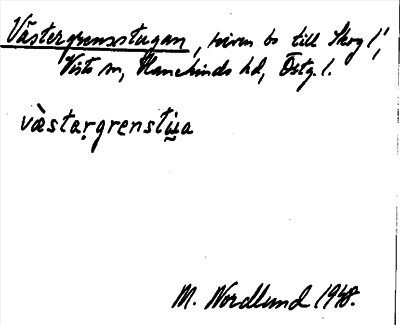 Västergrensstugan, riven bs till Skog 1',
Vists sn, Hanekinds hd, Östg. l.
västargrenstu̯a
M. Nordlund 1948.